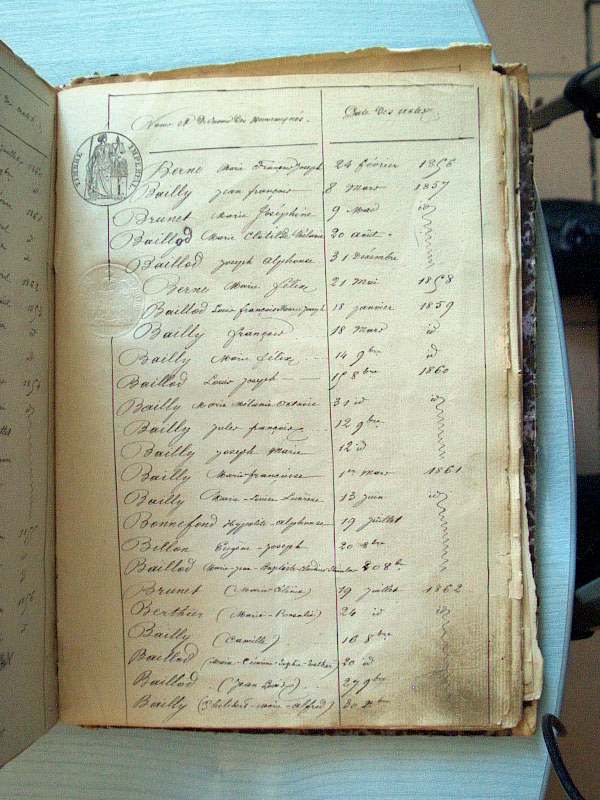 Noms et Prénoms des Nouveaux nés. Date des actes
TIMBRE IMPERIAL
Berne Marie François Joseph 24 février 1856
Bailly Jean françois 8 Mars 1857
Brunet Marie Joséphine 9 Mai id
Baillod Marie Clotilde 20 août
Baillod Joseph Alphonse 31 Décembre
Berne Marie félix 21 Mai 1858
Baillod Louis françois Marie Joseph 18 janvier 1859
Bailly françois 18 Mars id
Bailly Marie félix 14 9bre id
Baillod Louis Joseph 15 8bre 1860
Bailly Marie Mélanie 31 id id
Bailly Jules françois 12 9bre
Bailly Joseph Marie 12 id
Bailly Marie-françoise 1er Mars 1861
Bailly Marie-Louise 13 juin id
Bonnefond Hypolite-Alphonse 19 juillet
Billon Eugène-Joseph 20 8bre
Baillod Marie-Jean-Baptiste 20 8bre
Brunet (Marie 19 juillet 1862
Berthier (Marie-Rosalie) 24 id id
Bailly (Camille) 16 8bre
Baillod (Marie Sophie 20 id
Baillod (Jean 27 9bre
Bailly (Philibert-Marie-Alfred) 30